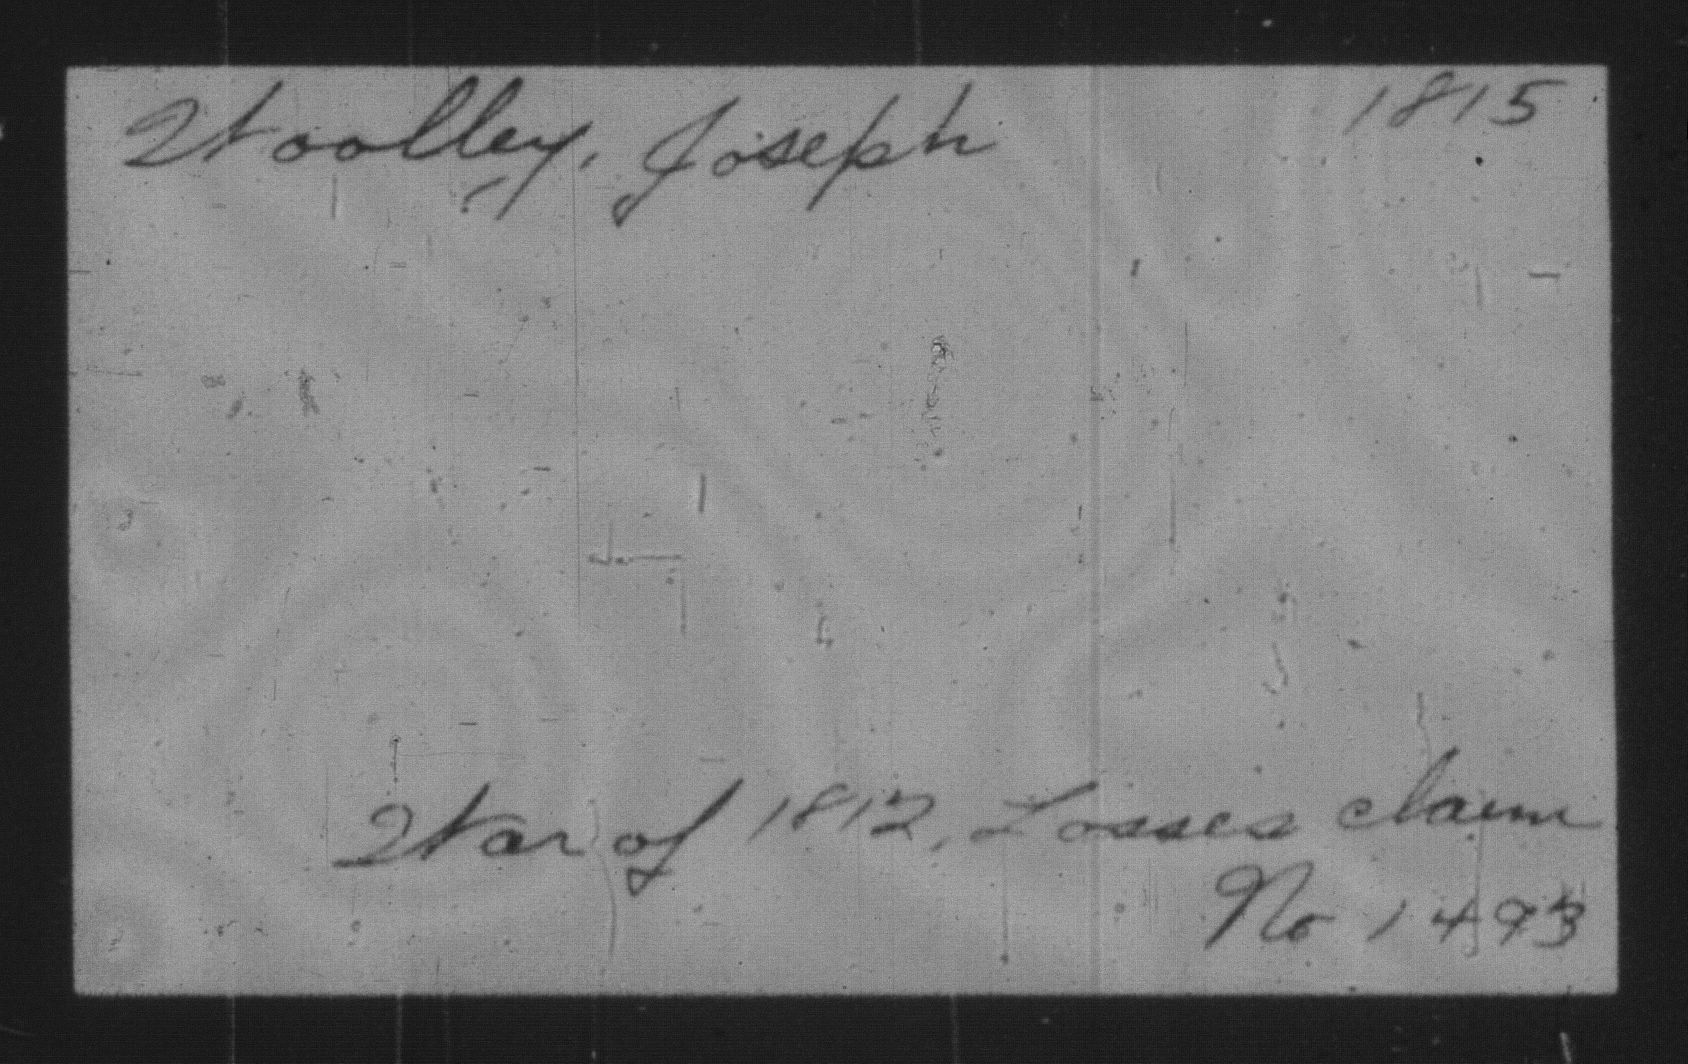 Woolley, Joseph 1815
War of 1812, Losses claim
No 1493